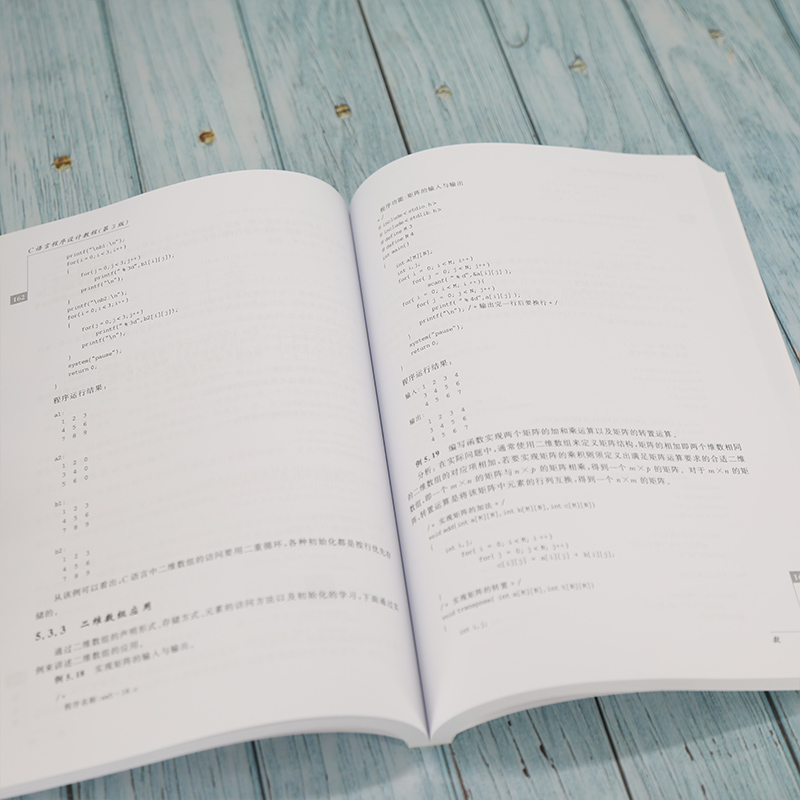 C 语言程序设计教程(第3版)
162
printf("\nb1:\n");
for(i=0;i<3;i++)
{ for(j=0;j<3;j++)
printf("%3d",b1[i][j]);
printf("\n");
}
printf("\nb2:\n");
for(i=0;i<3;i++)
{
for(j=0;j<3;j++)
printf("%3d",b2[i][j]);
printf("\n");
}
system("pause");
return 0;
}
程序运行结果:
a1:
1 2 3
4 5 6
7 8 9
a2:
1 2 0
4 0
6 0
b1:
1 2 3
4 5 6
7 8 9
b2:
1 2 3
4 5 6
7 8 9
从该例可以看出,C 语言中二维数组的访问要用二重循环,各种初始化都是按行优先存
储的。
5.3.3 二维数组应用
通过二维数组的声明形式、存储方式、元素的访问方法以及初始化的学习,下面通过
例来讲述二维数组的应用。
例 5.18 实现矩阵的输入与输出。
/*
程序名称:
程序功能:矩阵的输入与输出
*/
#include<stdio.h>
#include<stdlib.h>
#define M 3
#define N 4
int main()
{ int a[M][N];
int i,j;
for( i = 0; i<M; i++)
for( j = 0; j<N; j++)
scanf("%d",&a[i][j]);
for( i = 0; i<M; i++){
for( j = 0; j<N; j++)
printf("%4d",a[i][j]);
printf("\n"); /*输出完一行后要换行*/
}
system("pause");
return 0;
}
程序运行结果:
输入:1 2 3 4
3 4 5 6
4 5 6 7
输出:
1 2 3 4
3 4 5 6
4 5 6 7
例 5.19 编写函数实现两个矩阵的加和乘运算以及矩阵的转置运算。
分析:在实际问题中,通常使用二维数组来定义矩阵结构,矩阵的相加即两个维数相同
的二维数组的对应项相加,若要实现矩阵的乘积则须定义出满足矩阵运算要求的合适二维
数组,即一个 m×n 的矩阵与 n×p 的矩阵相乘,得到一个 m×p 的矩阵。对于 m×n 的矩
阵,转置运算是将该矩阵中元素的行列互换,得到一个 n×m 的矩阵。
/* 实现矩阵的加法 */
void add(int a[M][N],int b[M][N],int c[M][N])
{ int i,j;
for( i = 0; i<M; i++)
for( j = 0; j<N; j++)
c[i][j] = a[i][j] + b[i][j];
}
/* 实现矩阵的转置 */
void transpose( int a[M][N],int c[N][M])
{ int i,j;
数